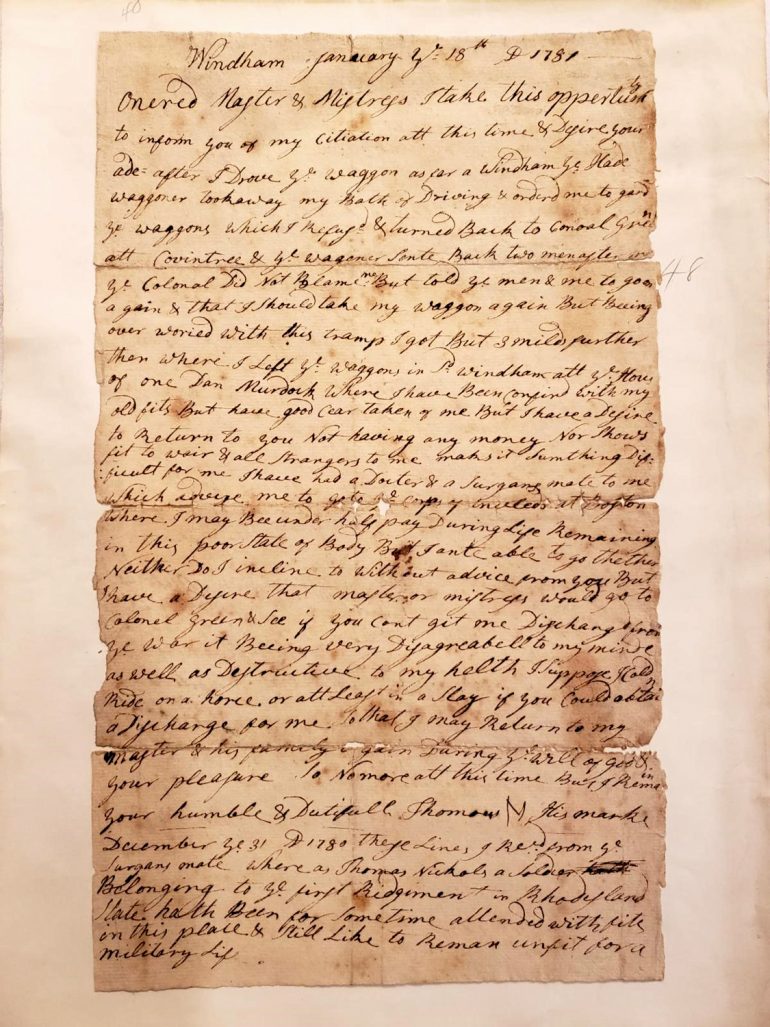 40
Windham January Ye 18th AD 1781
Onered Master & Mistress I take this oppertunity
to inform you of my Citiation att this time & Desire your
ade= after I Drove ye waggon as far a Windham Ye Slade
waggoner tookaway my Bath of Driving & orderd me to gard
Ye waggons which I Refusd & turned Back to Conoal Green
att Covintree & Ye wagoner Sente Back two men after me
Ye Colonal Did Not Blame me But told Ye men & me to goe
a gain & that I Should take my waggon again But Being
over woried with this tramp I got But 3 milds further
then where I Left Ye waggons in Sd Windham att Ye Hous
of one Dan Murdock where I have Been Confind with my
old fits But have good Cear taken of me But I have a Desire
to Return to you Not having any money Nor Shows
fit to wair & all Strangers to me maks it Sumthing Dif-
ficult for me I have had a Docter & a Surgans mate to me
which advise me to go to ye Corps of at Boston
where I may Bee under half pay During Life Remaining
in this poor State of Body But I ante able to go thether
Neither Do I incline to without advice from you But
I have a Desire that master or mistress would go to
Colonel Green & See if you Cont git me Dischangd from
Ye War it Beeing very Disagreabell to my minde
as well as Destructive to my helth I Suppose I Cold
Ride on a horce or att Least in a Slay if you Could obtain
a Discharge for me So that I may Return to my
Master & his family again During Ye Will of God &
your pleasure So No more att this time But I Remain
your humble & Dutifull Thomous N His marke
December Ye 31 AD 1780 these Lines I Recd from ye
Surgans mate where as Thomas Nichols a Soldier
Belonging to Ye first Ridgment in Rhodisland
State hath Been for Sometime attended with fits
in this place & Still Like to Reman unfit for a
military Life
48